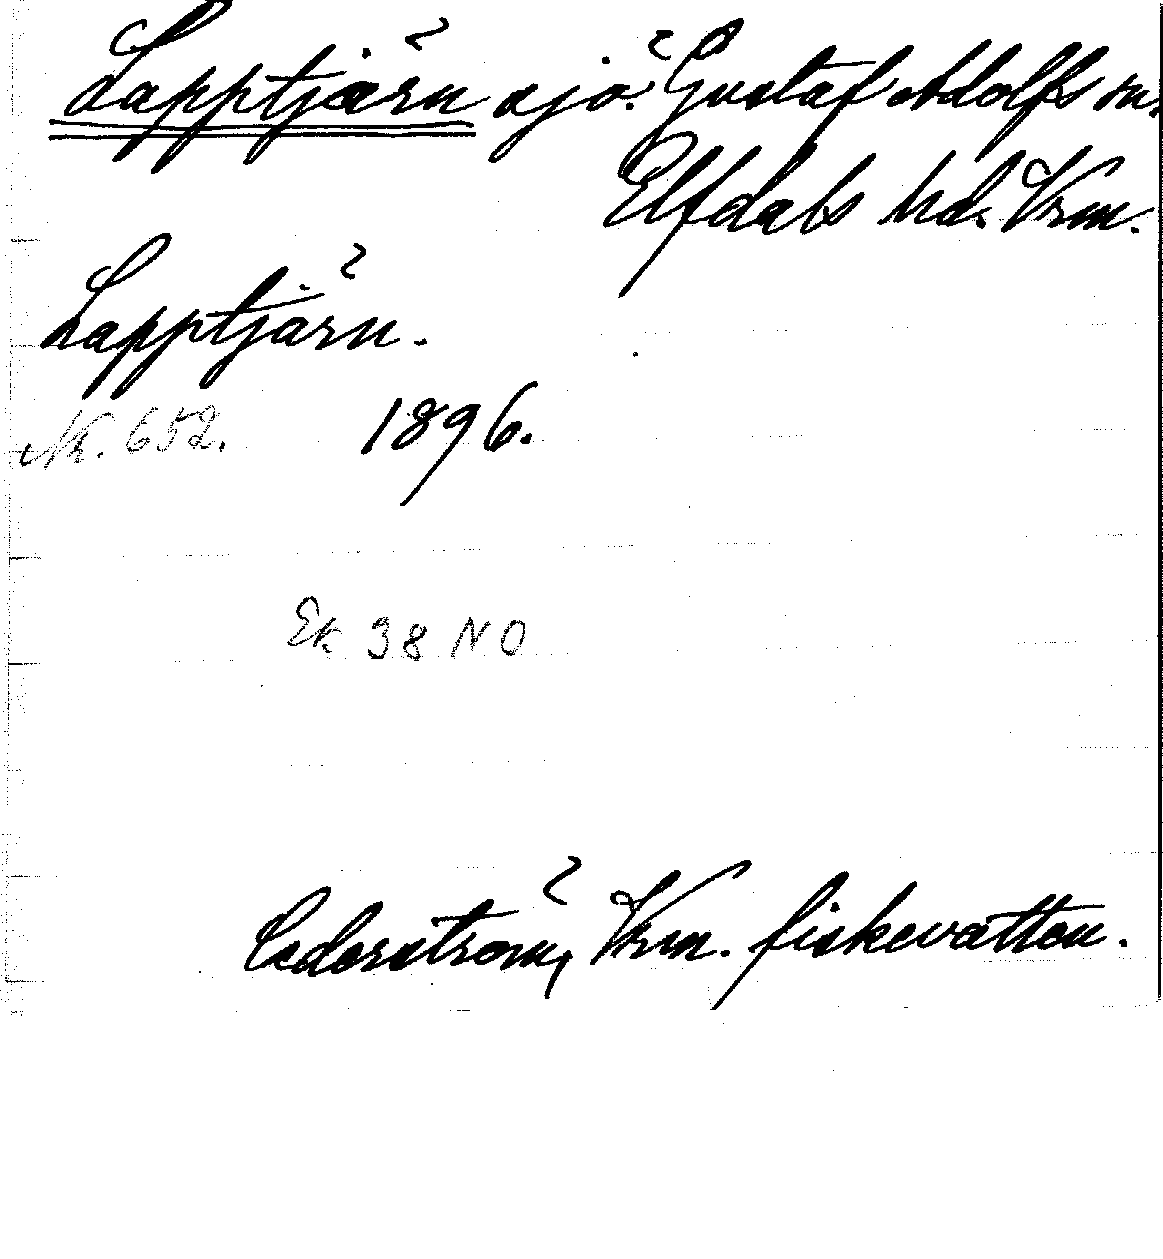 Lapptjärn sjö. Gustaf Adolfs sn.
Elfdals hd. Vrm.
Lapptjärn.
Nr. 652. 1896.
Ek 38 NO
Cederström, Vrm. fiskevatten.